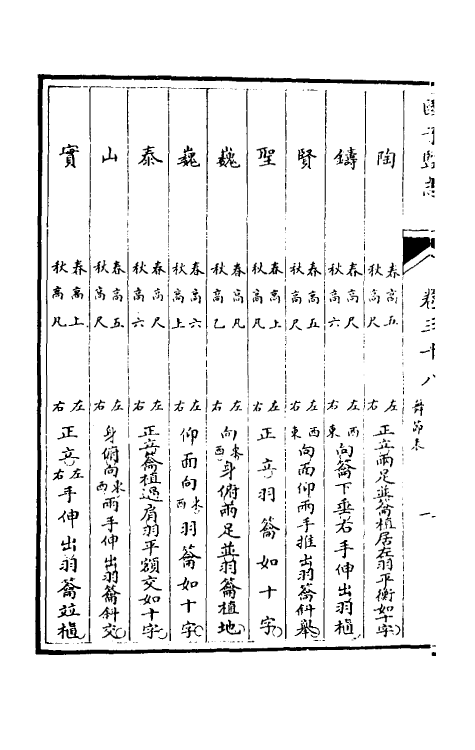 國子監志
卷三十八
舞節表
一
陶 春高五 秋高尺 左右 正立兩足並籥植居左羽平衡如十字
鑄 春高尺 秋高六 左西右東 向籥下垂右手伸出羽植
賢 春高五 秋高尺 左西右東 向面仰兩手推出羽籥斜舉
聖 春高五 秋高上 左右 正立羽籥如十字
巍 春高凡 秋高乙 左右 向東西身俯兩足並羽籥植地
巍 春高六 秋高上 左右 仰面向東西羽籥如十字
泰 春高尺 秋高六 左右 正立籥植過肩羽平額交如十字
山 春高五 秋高尺 左右 身俯向東西兩手伸出羽籥斜交
實 春高上 秋高凡 左右 正立左右手伸出羽籥並植